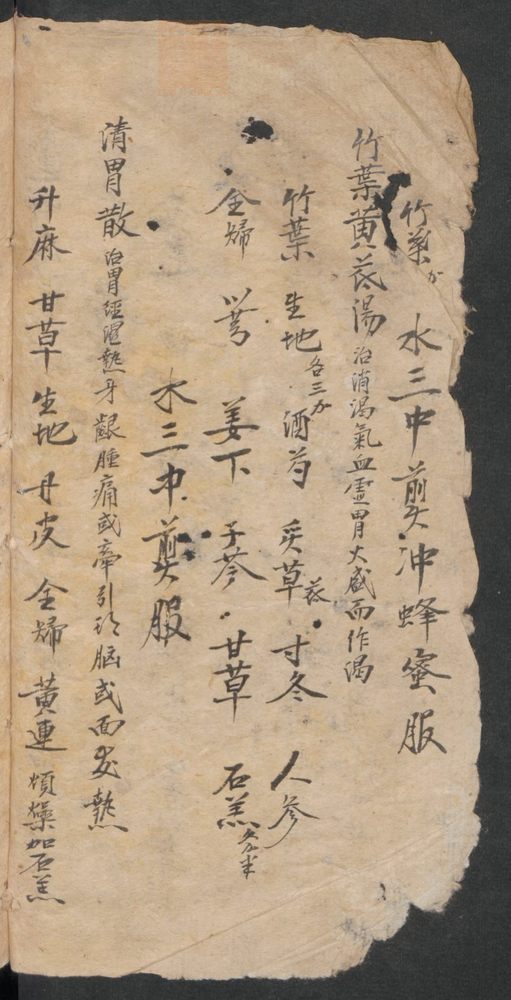 竹葉 水三中煎冲蜂蜜服
竹葉黄芪湯 治消渴氣血虛胃火盛而作渴
竹葉 生地各三分 酒芍 炙草 芪 寸冬 人参
全歸 川芎 姜下 子芩 甘草 石羔
水三中煎服
清胃散 治胃經湿熱牙齦腫痛或牽引頭脳或面发熱
升麻 甘草 生地 丹皮 全歸 黄連 煩燥加石羔